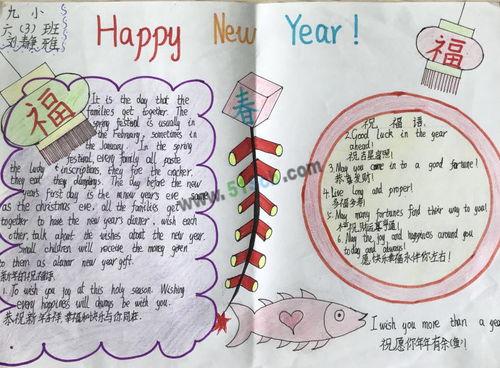 九 小
六（3）班
Happy New Year!
福
福
春
It is the day that the
families get together. The
spring festival is usually in
the February, sometimes in
the January. In the spring
festival, every family all paste
the lucky inscriptions, they fire the cracker,
they eat they dumplings. The day before the new
years First day is the new years eve same
as the christmas eve, all the families get
together to have the new years dinner, wish each
other talk about the wishes about the new year.
Small children will receive the money given
to them as alunar new year gift.
1. To wish you joy at this holy season. Wishing
every happiness will always be with you.
恭祝新年吉祥，幸福和快乐与你同在.
祝 福 语
2. Good luck in the year
ahead!
祝吉星高照!
3. May you come in to a good fortune!
恭福发财!
4. Live long and proper!
多福多寿!
5. May many fortunes find their way to you!
祝财运亨通!
6. May the joy and happiness around you
today and always!
愿快乐幸福永伴你左右!
I wish you more than a year
祝愿你年年有余(鱼)